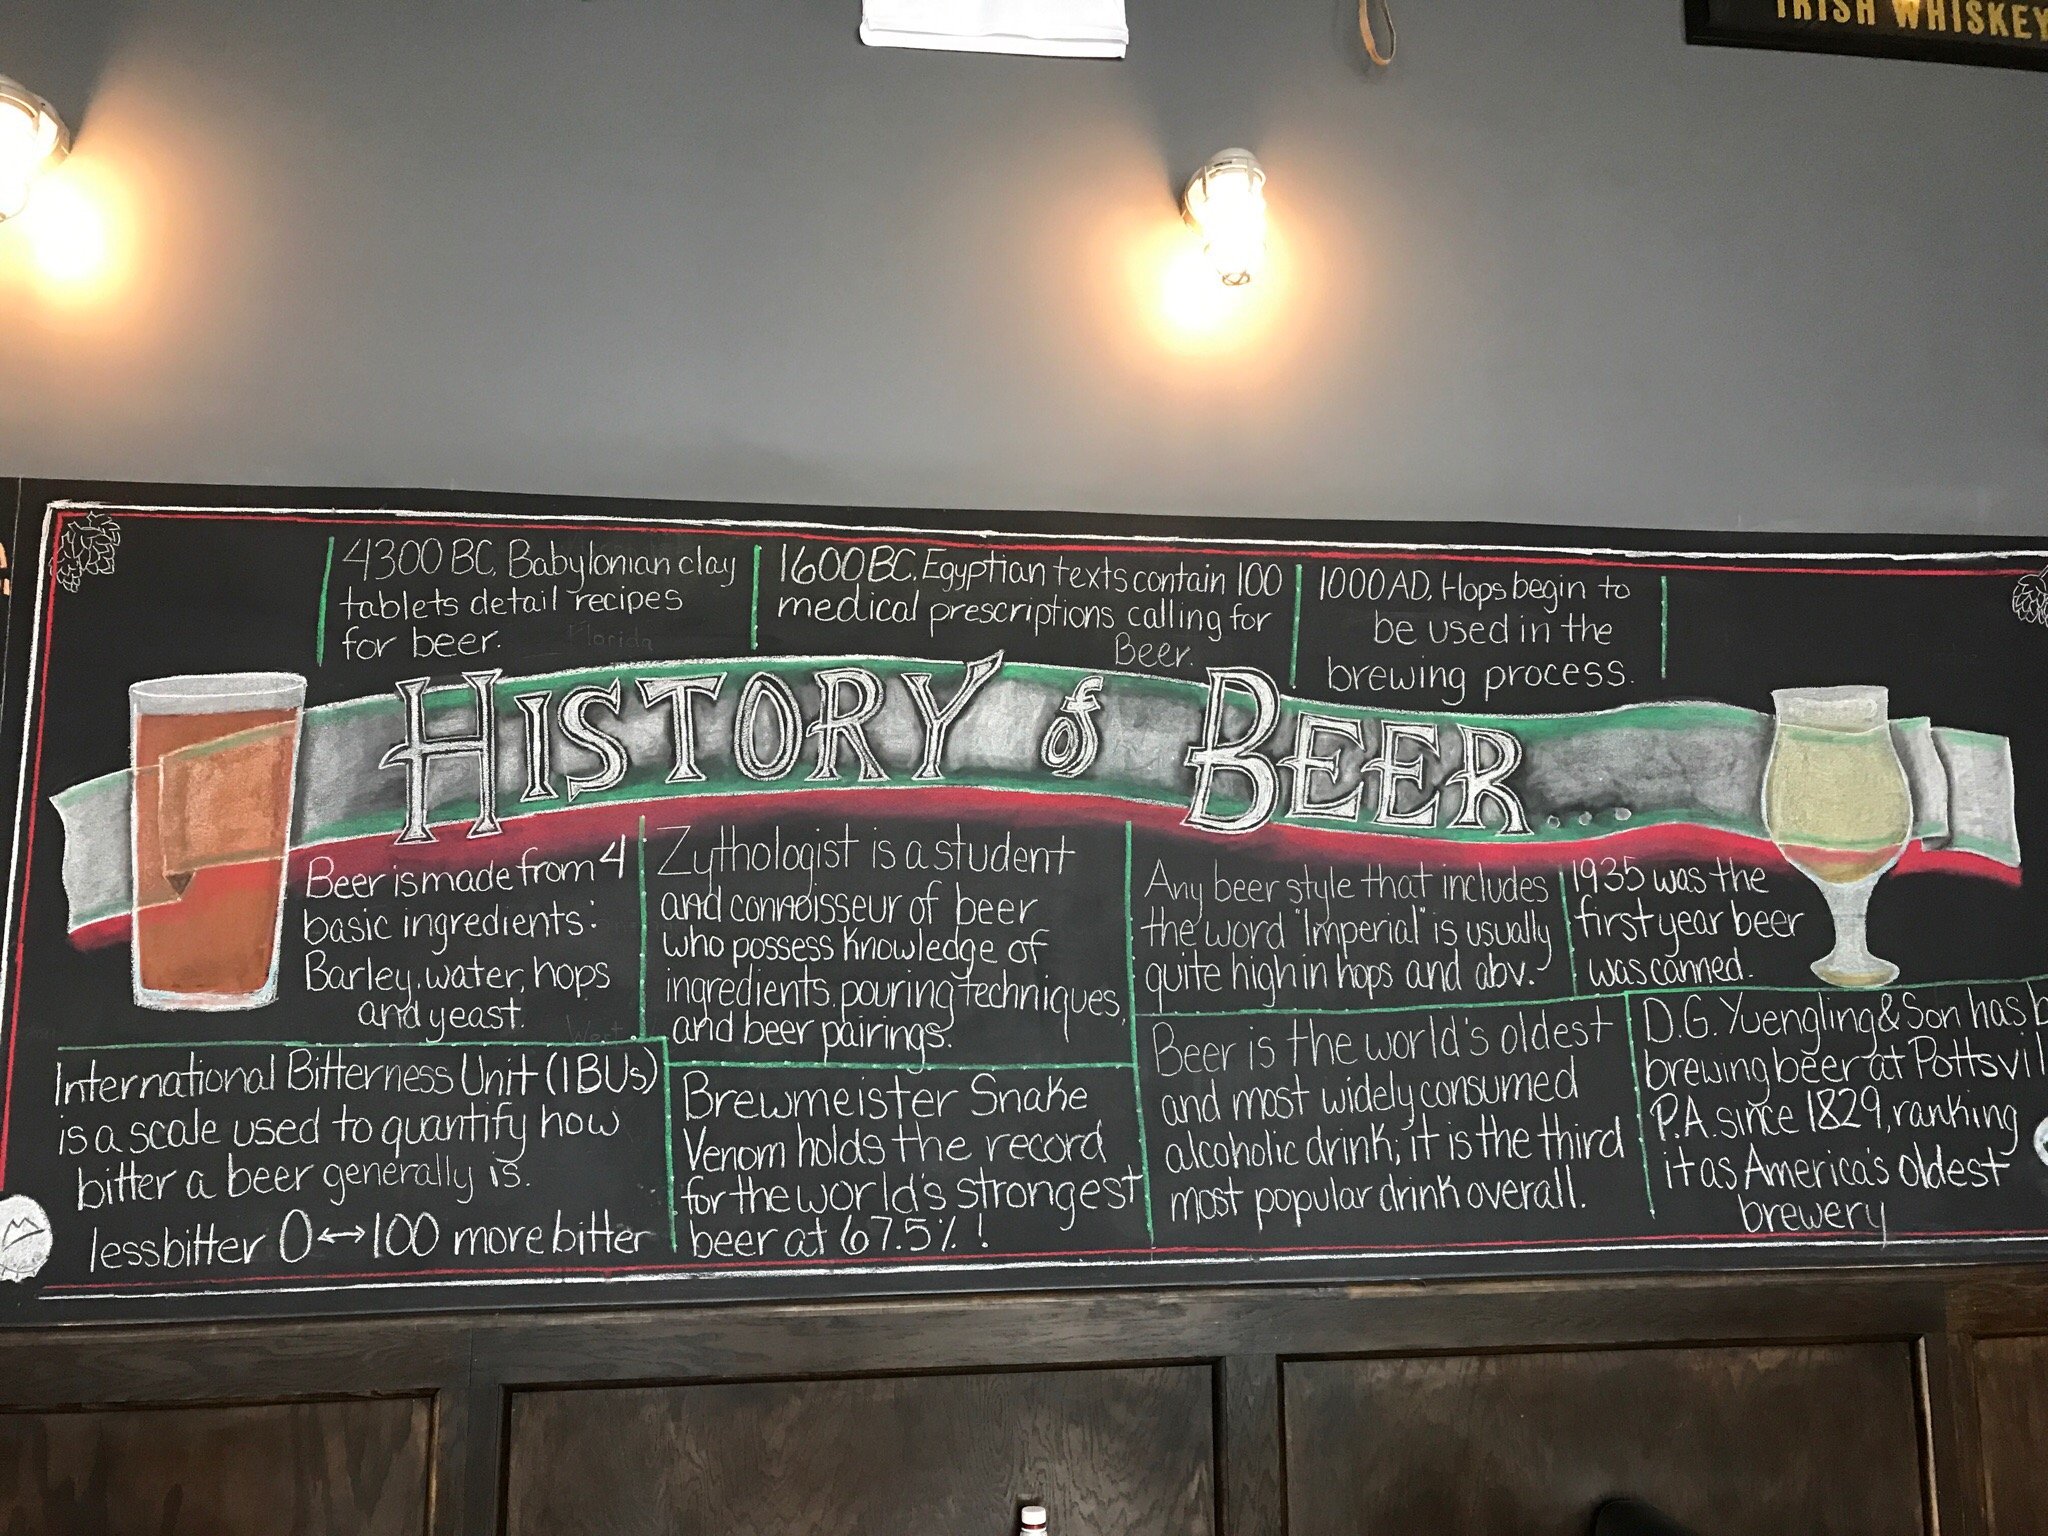 IRISH WHISKEY
4300 BC, Babylonian clay
tablets detail recipes
for beer.
Florida
1600 BC, Egyptian texts contain 100
medical prescriptions calling for
Beer.
1000 AD, Hops begin to
be used in the
brewing process.
HISTORY of BEER...
Beer is made from 4
basic ingredients:
Barley, water, hops
and yeast.
West
Zythologist is a student
and connoisseur of beer
who possess knowledge of
ingredients, pouring techniques,
and beer pairings.
Any beer style that includes
the word "Imperial" is usually
quite high in hops and abv.
1935 was the
first year beer
was canned.
International Bitterness Unit (IBUs)
is a scale used to quantify how
bitter a beer generally is.
less bitter 0 ↔ 100 more bitter
Brewmeister Snake
Venom holds the record
for the world's strongest
beer at 67.5% !
Beer is the world's oldest
and most widely consumed
alcoholic drink; it is the third
most popular drink overall.
D.G. Yuengling & Son has b
brewing beer at Pottsvil
P.A. since 1829, ranking
it as America's oldest
brewery